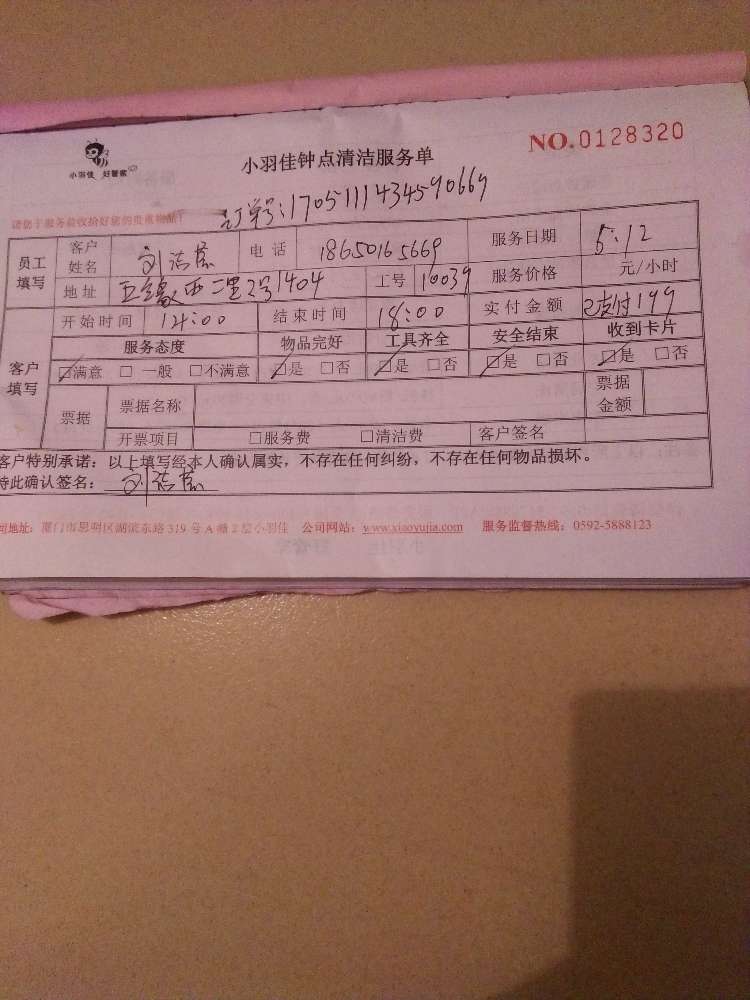 小羽佳 好管家
小羽佳钟点清洁服务单
NO.0128320
订单号:170511143459066
请您于服务前收拾好您的贵重物品!
员工填写 客户姓名 刘洁 电话 18650165669 服务日期 5:12
地址 西二里2号1404 工号 10039 服务价格 元/小时
客户填写 开始时间 14:00 结束时间 18:00 实付金额 已支付199
服务态度 物品完好 工具齐全 安全结束 收到卡片
☑满意 □一般 □不满意 ☑是 □否 ☑是 □否 ☑是 □否 ☑是 □否
票据 票据名称 票据金额
开票项目 □服务费 □清洁费 客户签名
客户特别承诺：以上填写经本人确认属实，不存在任何纠纷，不存在任何物品损坏。
特此确认签名： 刘洁
司地址：厦门市思明区湖滨东路319号A幢2层小羽佳 公司网站：www.xiaoyujia.com 服务监督热线：0592-5888123